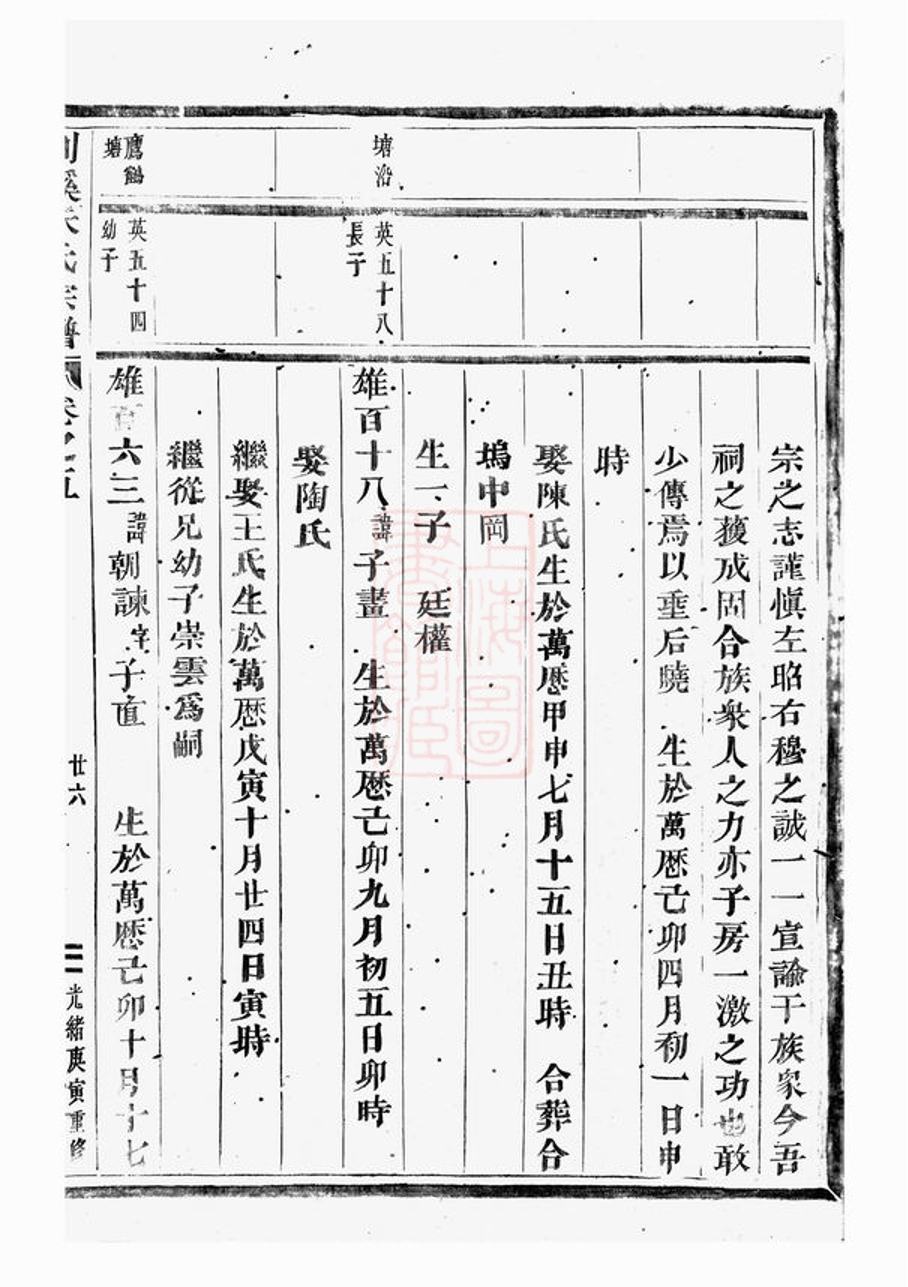 宗之志謹愼左昭右穆之誠一一宣諭于族衆今吾
祠之獲成固合族衆人之力亦子房一激之功也敢
少傳焉以垂后曉 生於萬厯己卯四月初一日申
時
娶陳氏生於萬厯甲申七月十五日丑時 合葬合
塢中岡
生一子 廷權
塘沿
英五十八
長子
雄百十八 諱 子畫 生於萬厯己卯九月初五日卯時
娶陶氏
繼娶王氏生於萬厯戊寅十月廿四日寅時
繼從兄幼子崇雲爲嗣
鷹鶴
塘
英五十四
幼子
雄百六三 諱 朝諫 字 子直 生於萬厯己卯十月十七
氏宗譜 卷之五 廿六 光緒庚寅重修
上海圖書館藏